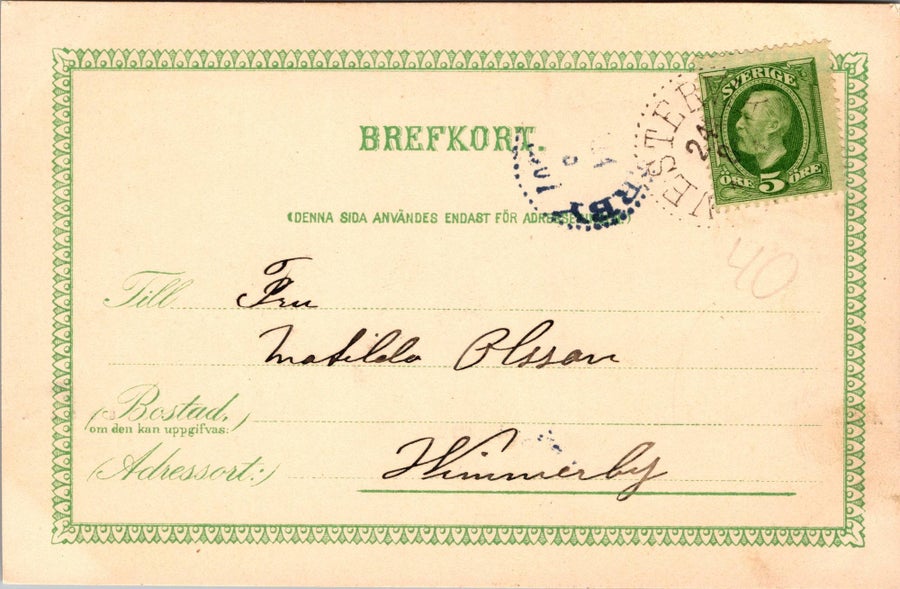 BREFKORT.
(DENNA SIDA ANVÄNDES ENDAST FÖR
SVERIGE
ÖRE 5 ÖRE
VESTER
24
RBY
40
Till Fru
Matilda Olsson
(Bostad,)
om den kan uppgifvas:
(Adressort:) Wimmerby